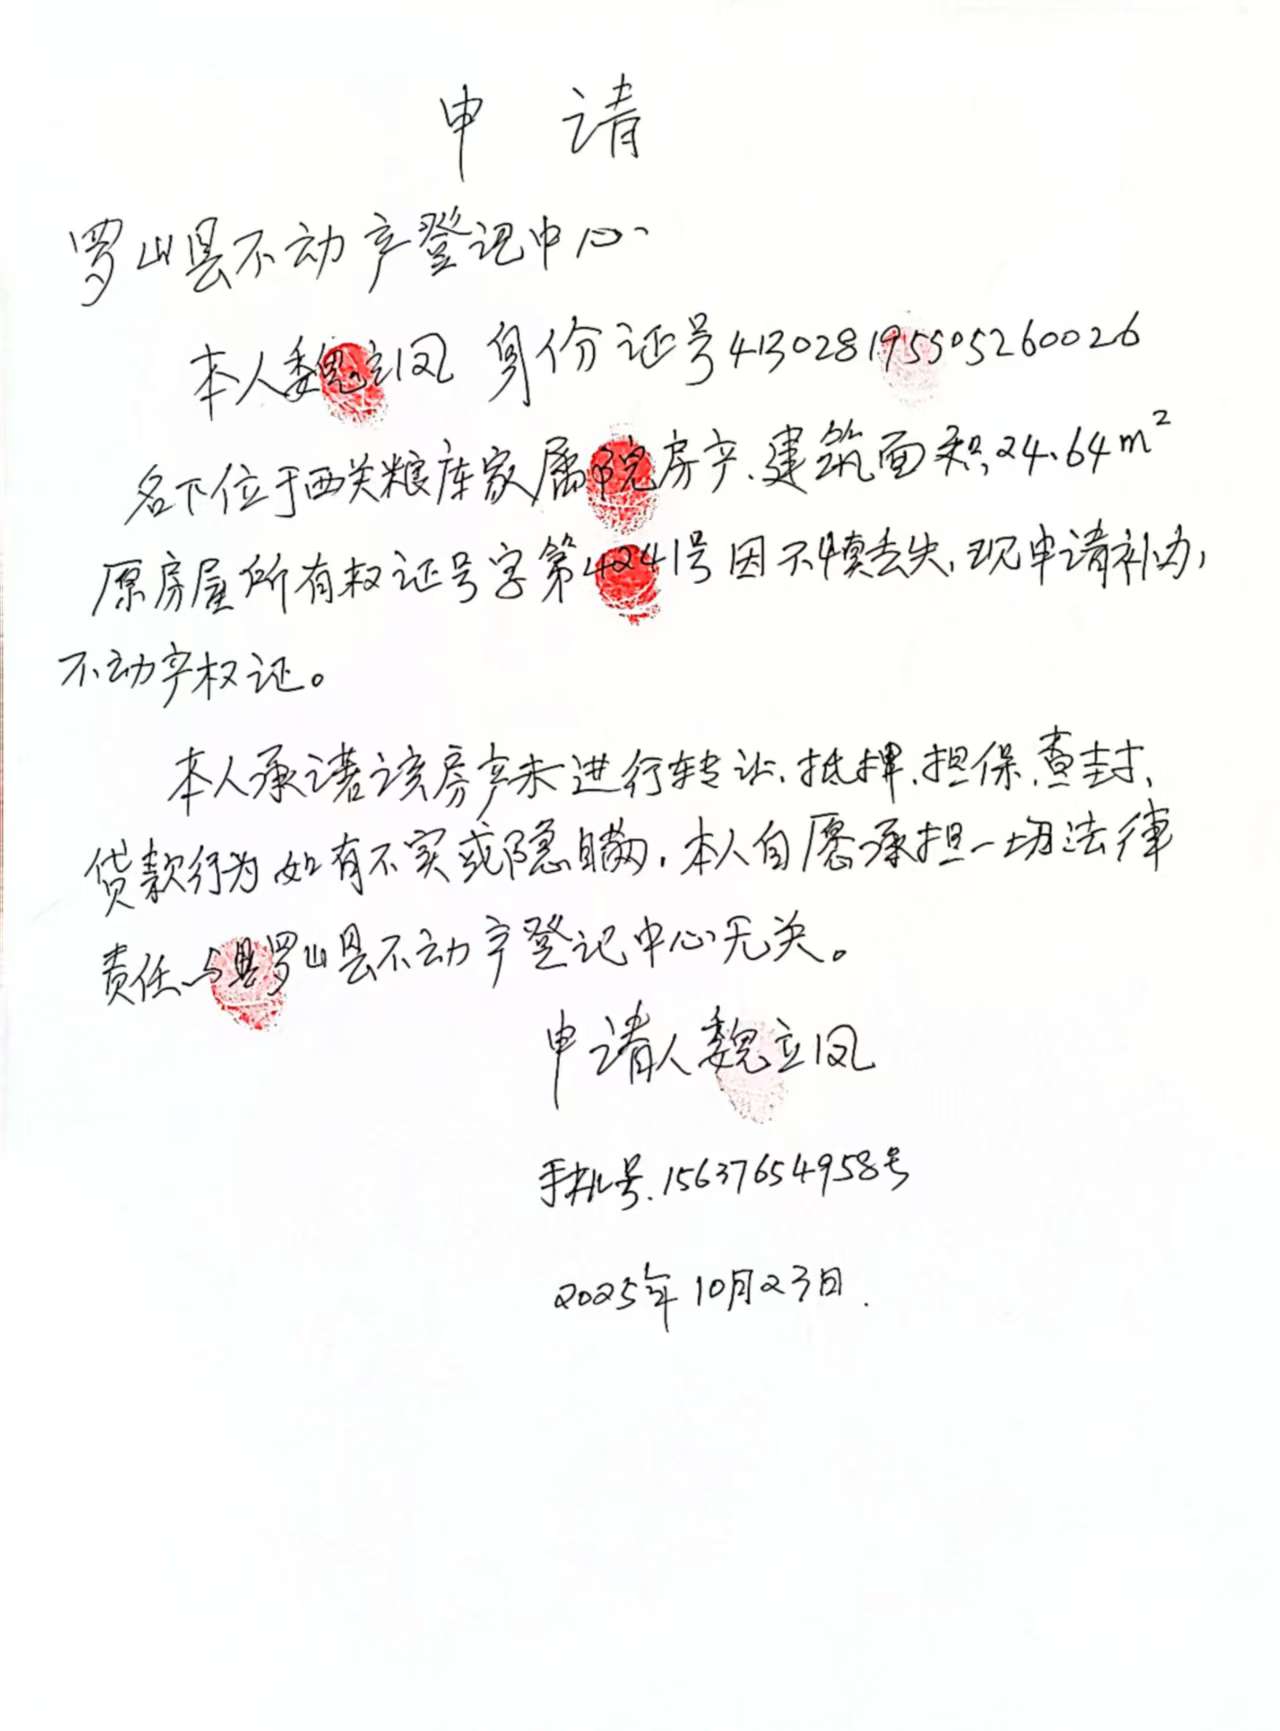 申 请
罗山县不动产登记中心
本人魏立凤 身份证号413028195505260026
名下位于西关粮库家属院房产、建筑面积24.64m²
原房屋所有权证号字第4241号因不慎丢失,现申请补办,
不动产权证。
本人承诺该房产未进行转让、抵押、担保、查封、
贷款行为如有不实或隐瞒,本人自愿承担一切法律
责任、与县罗山县不动产登记中心无关。
申请人魏立凤
手机号.15637654958号
2025年10月23日.